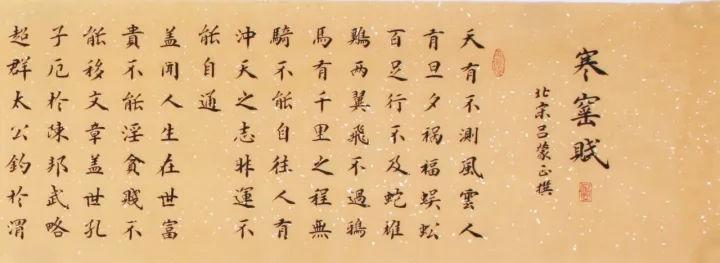 寒窯賦
北宋吕蒙正撰
天有不測風雲人
有旦夕禍福蜈蚣
百足行不及蛇雄
鷄两翼飛不過鴉
馬有千里之程無
騎不能自往人有
冲天之志非運不
能自通
盖聞人生在世富
貴不能淫貧賤不
能移文章盖世孔
子厄於陳邦武略
超群太公釣於渭